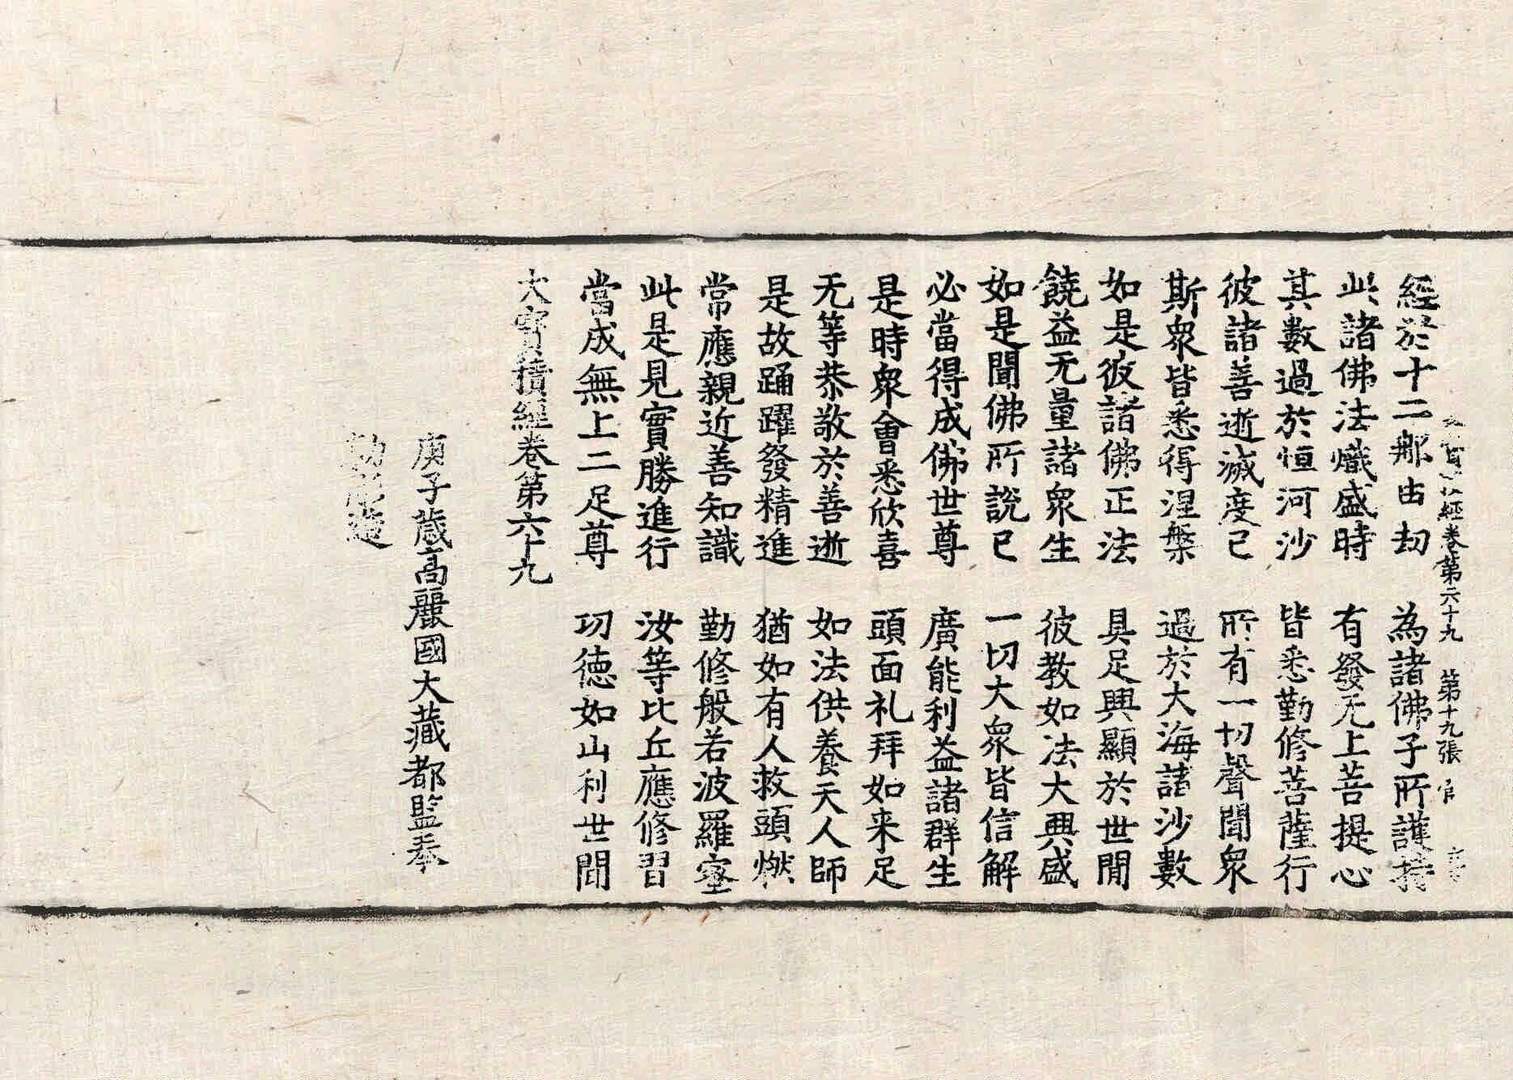 經卷第六十九 第十九張 官
經於十二那由劫 為諸佛子所護持
此諸佛法熾盛時 有發无上菩提心
其數過於恒河沙 皆悉勤修菩薩行
彼諸善逝滅度已 所有一切聲聞衆
斯衆皆悉得涅槃 過於大海諸沙數
如是彼諸佛正法 具足興顯於世間
饒益无量諸衆生 彼教如法大興盛
如是聞佛所說已 一切大衆皆信解
必當得成佛世尊 廣能利益諸群生
是時衆會悉欣喜 頭面礼拜如来足
无等恭敬於善逝 如法供養天人師
是故踊躍發精進 猶如有人救頭燃
常應親近善知識 勤修般若波羅蜜
此是見實勝進行 汝等比丘應修習
當成無上二足尊 功德如山利世間
大寶積經卷第六十九
庚子歲高麗國大藏都監奉
勅彫造